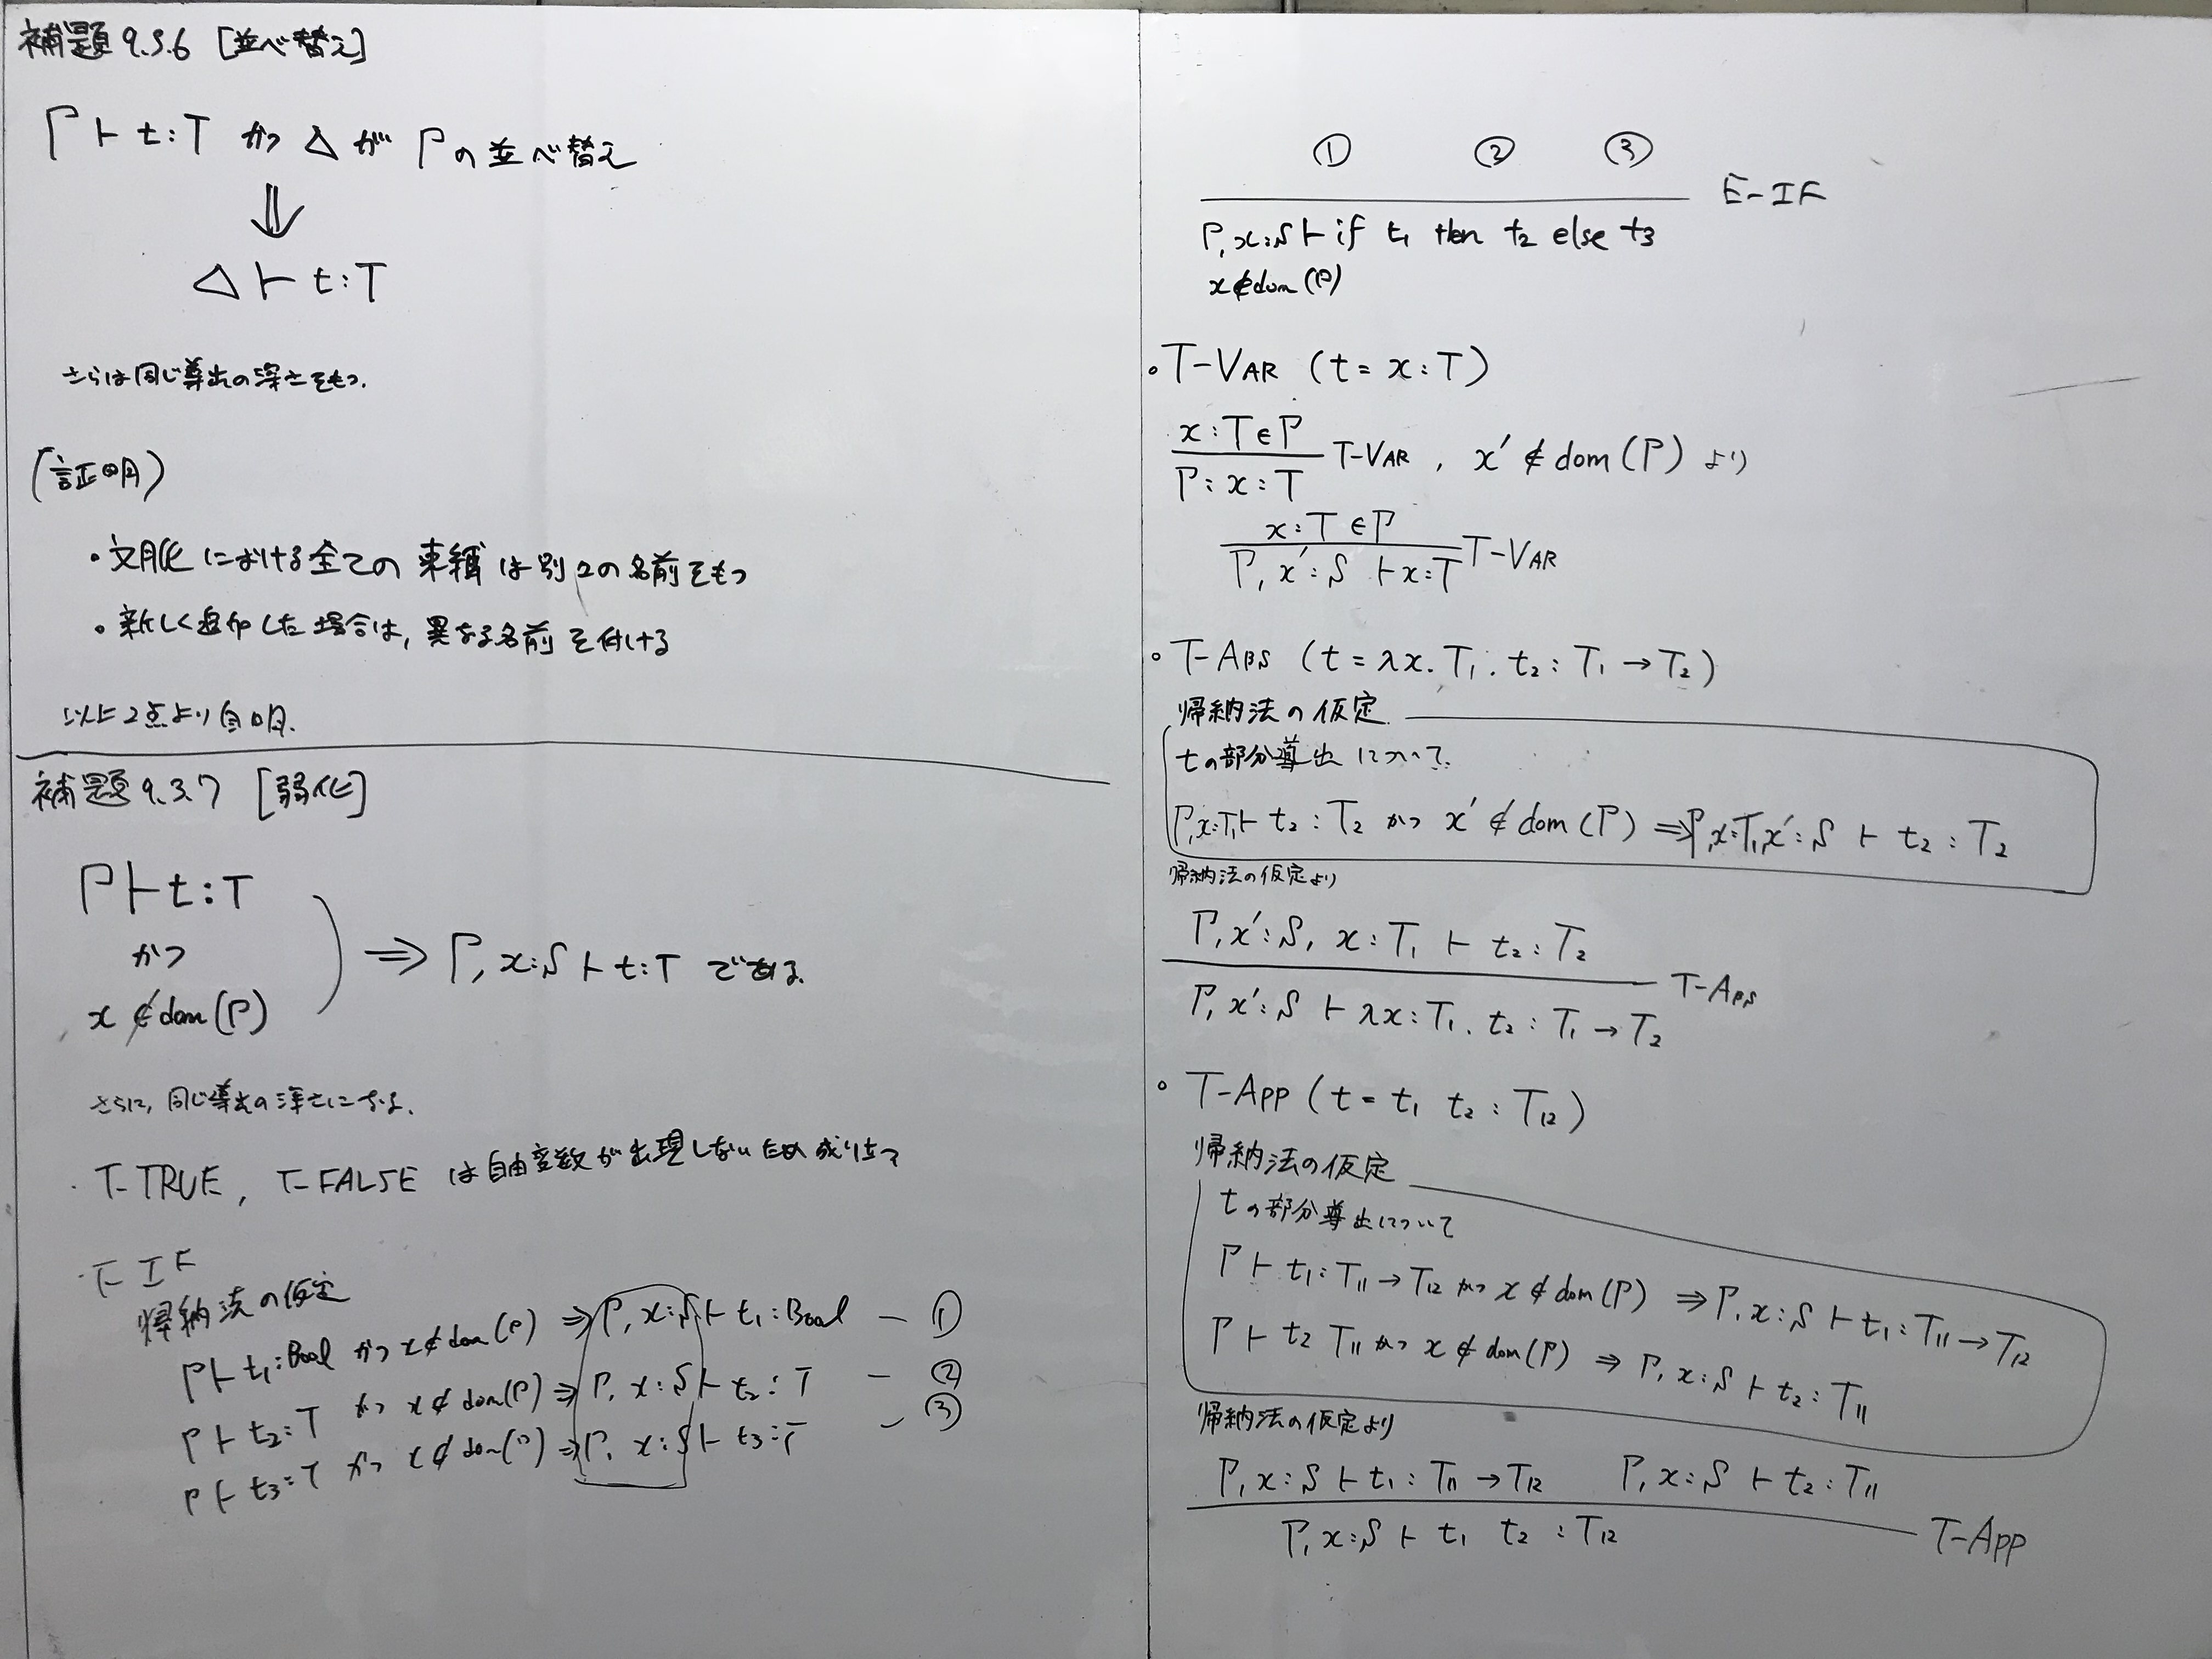 補題9.3.6 [並べ替え]
Γ ⊢ t:T かつ △が Γの並べ替え
⇓
△ ⊢ t:T
さらは同じ導出の深さをもつ.
(証明)
・文脈における全ての束縛は別々の名前をもつ
・新しく追加した場合は, 異なる名前を付ける
以上2点より自明.
補題9.3.7 [弱化]
Γ ⊢ t:T
かつ
x ∉ dom(Γ)
⇒ Γ, x:S ⊢ t:T である.
さらに, 同じ導出の深さになる.
・T-TRUE, T-FALSE は自由変数が出現しないため成り立つ
・T-IF
帰納法の仮定
Γ ⊢ t₁:Bool かつ x∉dom(Γ) ⇒ Γ, x:S ⊢ t₁:Bool — ①
Γ ⊢ t₂:T かつ x∉dom(Γ) ⇒ Γ, x:S ⊢ t₂:T — ②
Γ ⊢ t₃:T かつ x∉dom(Γ) ⇒ Γ, x:S ⊢ t₃:T — ③
① ② ③
E-IF
Γ, x:S ⊢ if t₁ then t₂ else t₃
x∉dom(Γ)
・T-VAR (t = x:T)
x:T∈Γ
Γ: x:T T-VAR , x′ ∉ dom(Γ) より
x:T ∈Γ
Γ, x′:S ⊢ x:T T-VAR
・T-ABS (t = λx. T₁. t₂ : T₁ → T₂)
帰納法の仮定
tの部分導出 について.
Γ,x:T₁ ⊢ t₂:T₂ かつ x′ ∉ dom(Γ) ⇒ Γ,x:T₁,x′:S ⊢ t₂:T₂
帰納法の仮定より
Γ, x′:S, x:T₁ ⊢ t₂:T₂
T-ABS
Γ, x′:S ⊢ λx:T₁. t₂ : T₁ → T₂
・T-APP (t = t₁ t₂ : T₁₂)
帰納法の仮定
tの部分導出について
Γ ⊢ t₁:T₁₁ → T₁₂ かつ x ∉ dom(Γ) ⇒ Γ, x:S ⊢ t₁:T₁₁ → T₁₂
Γ ⊢ t₂ T₁₁ かつ x ∉ dom(Γ) ⇒ Γ, x:S ⊢ t₂:T₁₁
帰納法の仮定より
Γ, x:S ⊢ t₁:T₁₁ → T₁₂ Γ, x:S ⊢ t₂:T₁₁
T-APP
Γ, x:S ⊢ t₁ t₂ : T₁₂